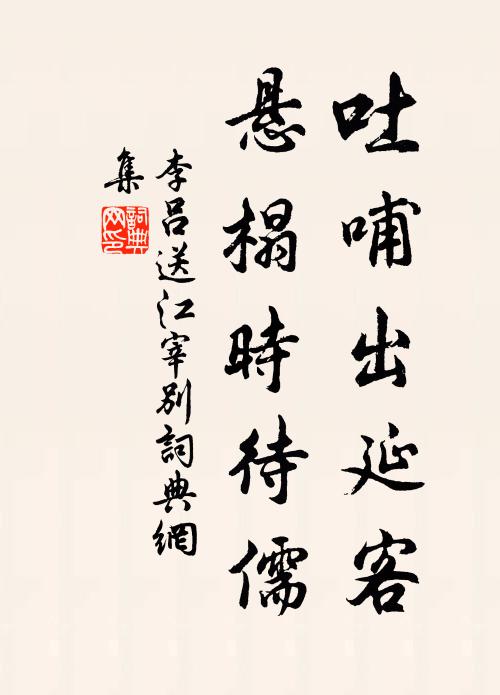 吐哺出延客
悬榻時待儒
李吕送江宰别詞典網
集
詞典网印